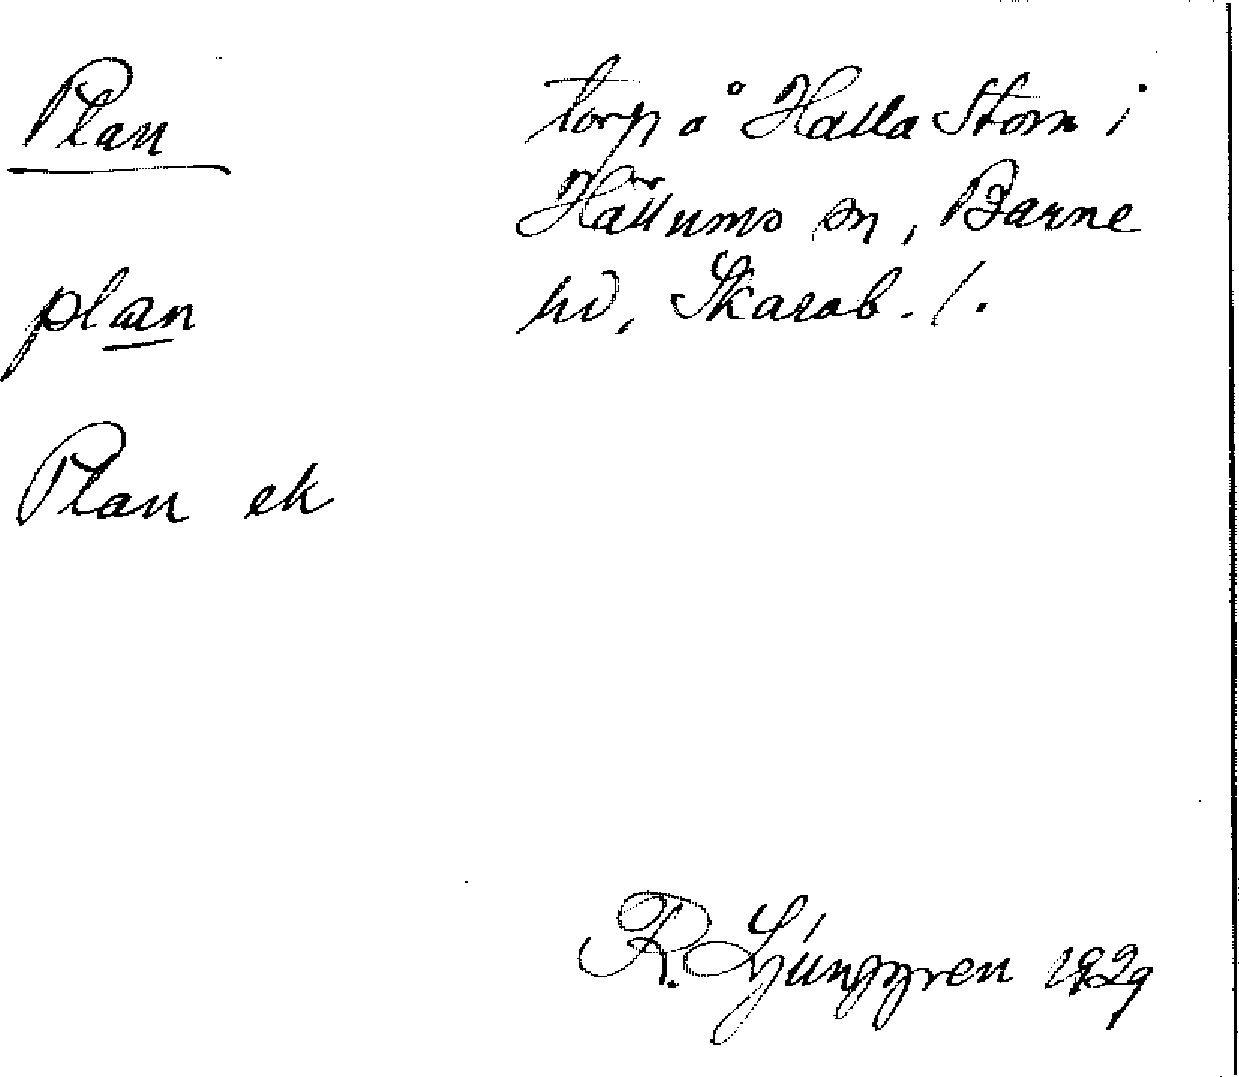 Plan
torp å Halla Stom i
Hällums sn, Barne
plan
hd, Skarab. l.
Plan ek
R. Ljunggren 1929